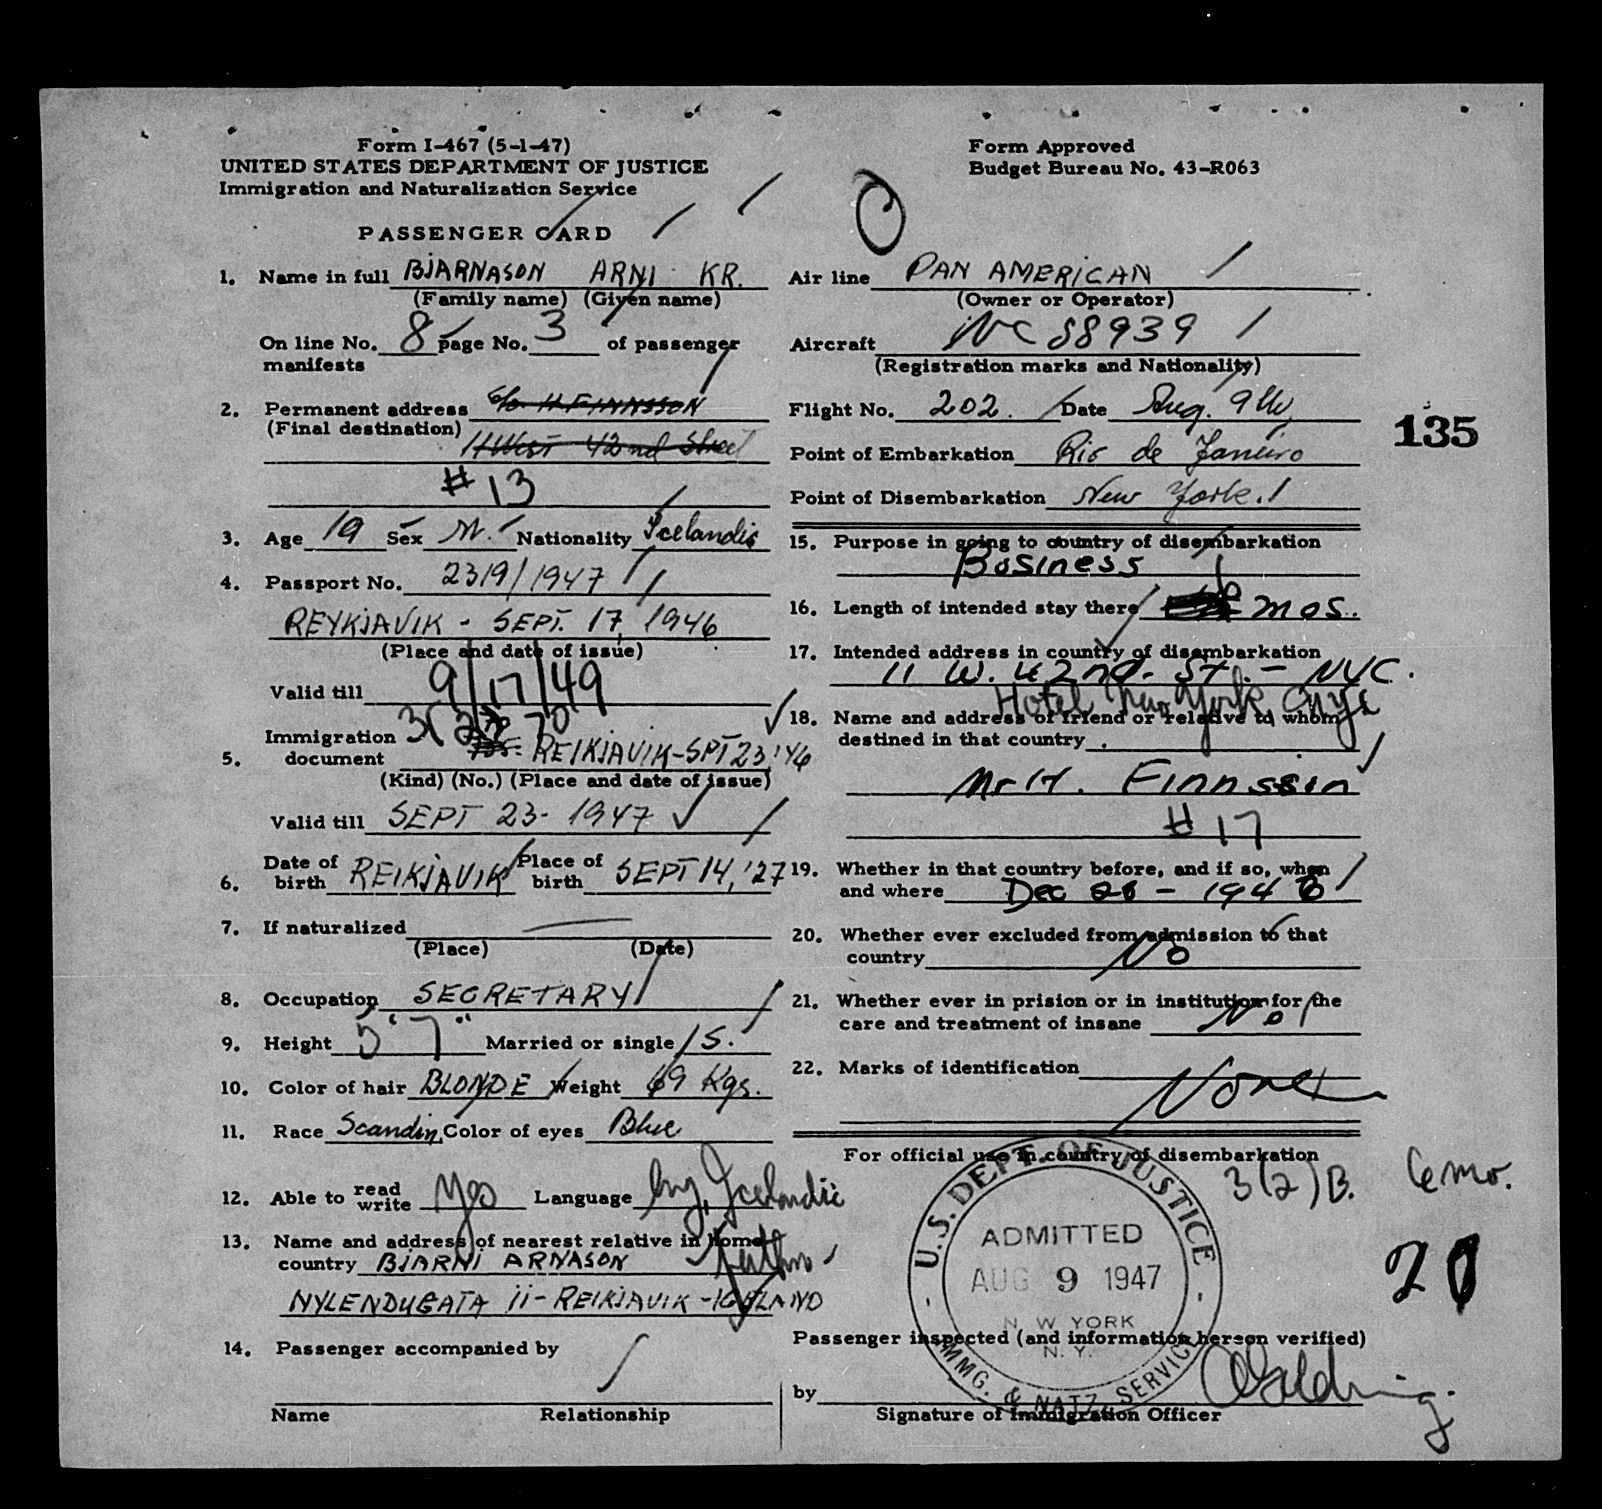 Form I-467 (5-1-47)
UNITED STATES DEPARTMENT OF JUSTICE
Immigration and Naturalization Service
PASSENGER CARD
1. Name in full BJARNASON ARNI KR.
(Family name) (Given name)
On line No. 8 page No. 3 of passenger
manifests
2. Permanent address c/o H. FINNSSON
(Final destination) 11 West 42nd Street
# 13
3. Age 19 Sex M. Nationality Icelandic
4. Passport No. 2319/1947
REYKJAVIK - SEPT. 17, 1946
(Place and date of issue)
Valid till 9/17/49
Immigration 3(2) 70
5. document REIKJAVIK-SPT 23,'46
(Kind) (No.) (Place and date of issue)
Valid till SEPT 23- 1947
6. Date of birth REIKJAVIK Place of birth SEPT 14, '27
7. If naturalized
(Place) (Date)
8. Occupation SECRETARY
9. Height 5' 7" Married or single S.
10. Color of hair BLONDE Weight 69 Kgs.
11. Race Scandin. Color of eyes Blue
12. Able to read write yes Language Eng, Icelandic
13. Name and address of nearest relative in home
country BJARNI ARNASON father
NYLENDUGATA 11 - REIKJAVIK - ICELAND
14. Passenger accompanied by
Name Relationship
Form Approved
Budget Bureau No. 43-R063
Air line PAN AMERICAN
(Owner or Operator)
Aircraft NC 88939
(Registration marks and Nationality)
Flight No. 202. Date Aug. 9th
135
Point of Embarkation Rio de Janeiro
Point of Disembarkation New York.
15. Purpose in going to country of disembarkation
Business
16. Length of intended stay there 6 mos.
17. Intended address in country of disembarkation
11 W. 42nd. St. - NYC.
Hotel New York, NYC
18. Name and address of friend or relative to whom
destined in that country
Mr H. Finnsson
# 17
19. Whether in that country before, and if so, when
and where Dec 28 - 1946
20. Whether ever excluded from admission to that
country No
21. Whether ever in prision or in institution for the
care and treatment of insane No
22. Marks of identification
None
For official use in country of disembarkation
3(2)B. 6 mo.
U.S. DEPT. OF JUSTICE
ADMITTED
AUG 9 1947
N W YORK
N. Y.
IMMG. & NATZ. SERVICE
Passenger inspected (and information hereon verified)
by
Signature of Immigration Officer